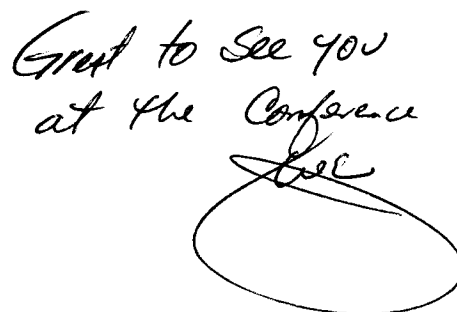 Great to see you
at the Conference